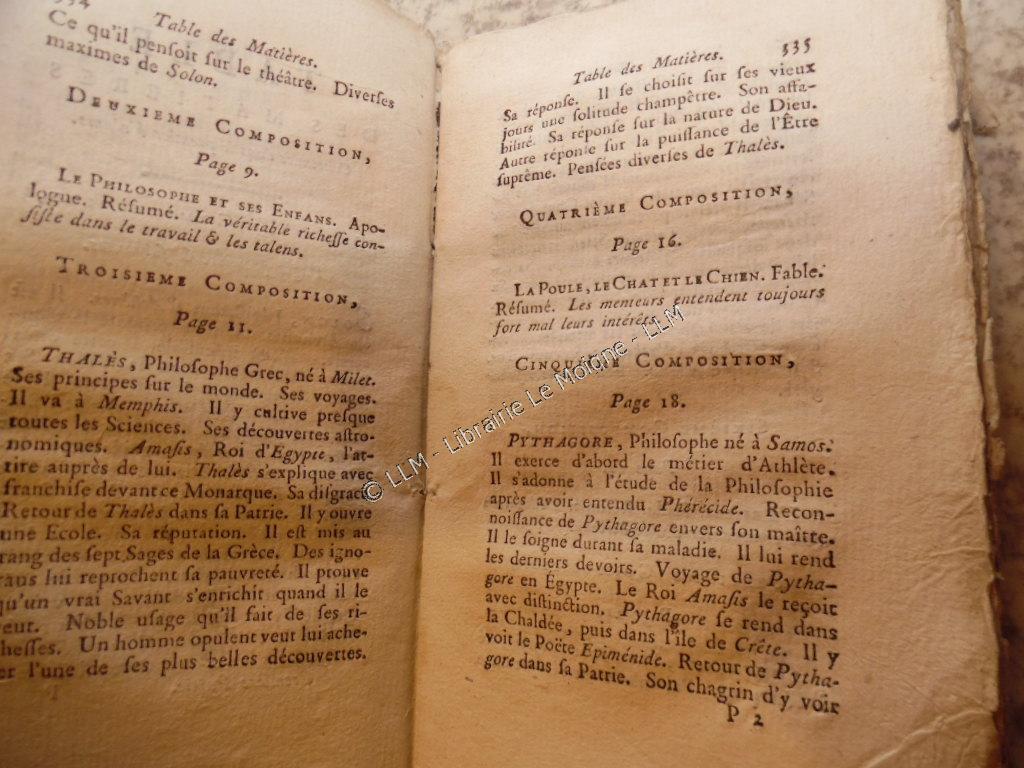 Table des Matières.
Ce qu'il penſoit ſur le théâtre. Diverſes
maximes de Solon.
DEUXIEME COMPOSITION,
Page 9.
LE PHILOSOPHE ET SES ENFANS. Apo-
logue. Réſumé. La véritable richeſſe con-
ſiſte dans le travail & les talens.
TROISIEME COMPOSITION,
Page 11.
THALÈS, Philoſophe Grec, né à Milet.
Ses principes ſur le monde. Ses voyages.
Il va à Memphis. Il y cultive preſque
toutes les Sciences. Ses découvertes aſtro-
nomiques. Amaſis, Roi d'Egypte, l'at-
tire auprès de lui. Thalès s'explique avec
franchiſe devant ce Monarque. Sa diſgrace
Retour de Thalès dans ſa Patrie. Il y ouvre
une Ecole. Sa réputation. Il eſt mis au
rang des ſept Sages de la Grèce. Des igno-
rans lui reprochent ſa pauvreté. Il prouve
qu'un vrai Savant s'enrichit quand il le
veut. Noble uſage qu'il fait de ſes ri-
cheſſes. Un homme opulent veut lui ache-
er l'une de ſes plus belles découvertes.
Table des Matières. 335
Sa réponſe. Il ſe choiſit ſur ſes vieux
jours une ſolitude champêtre. Son affa-
bilité. Sa réponſe ſur la nature de Dieu.
Autre réponſe ſur la puiſſance de l'Être
ſuprême. Penſées diverſes de Thalès.
QUATRIÈME COMPOSITION,
Page 16.
LA POULE, LE CHAT ET LE CHIEN. Fable.
Réſumé. Les menteurs entendent toujours
fort mal leurs intérêts.
CINQUIÈME COMPOSITION,
Page 18.
PYTHAGORE, Philoſophe né à Samos.
Il exerce d'abord le métier d'Athlète.
Il s'adonne à l'étude de la Philoſophie
après avoir entendu Phérécide. Recon-
noiſſance de Pythagore envers ſon maître.
Il le ſoigne durant ſa maladie. Il lui rend
les derniers devoirs. Voyage de Pytha-
gore en Égypte. Le Roi Amaſis le reçoit
avec diſtinction. Pythagore ſe rend dans
la Chaldée, puis dans l'île de Crête. Il y
voit le Poëte Epiménide. Retour de Pytha-
gore dans ſa Patrie. Son chagrin d'y voir
P 2
© LLM - Librairie Le Moigne - LLM